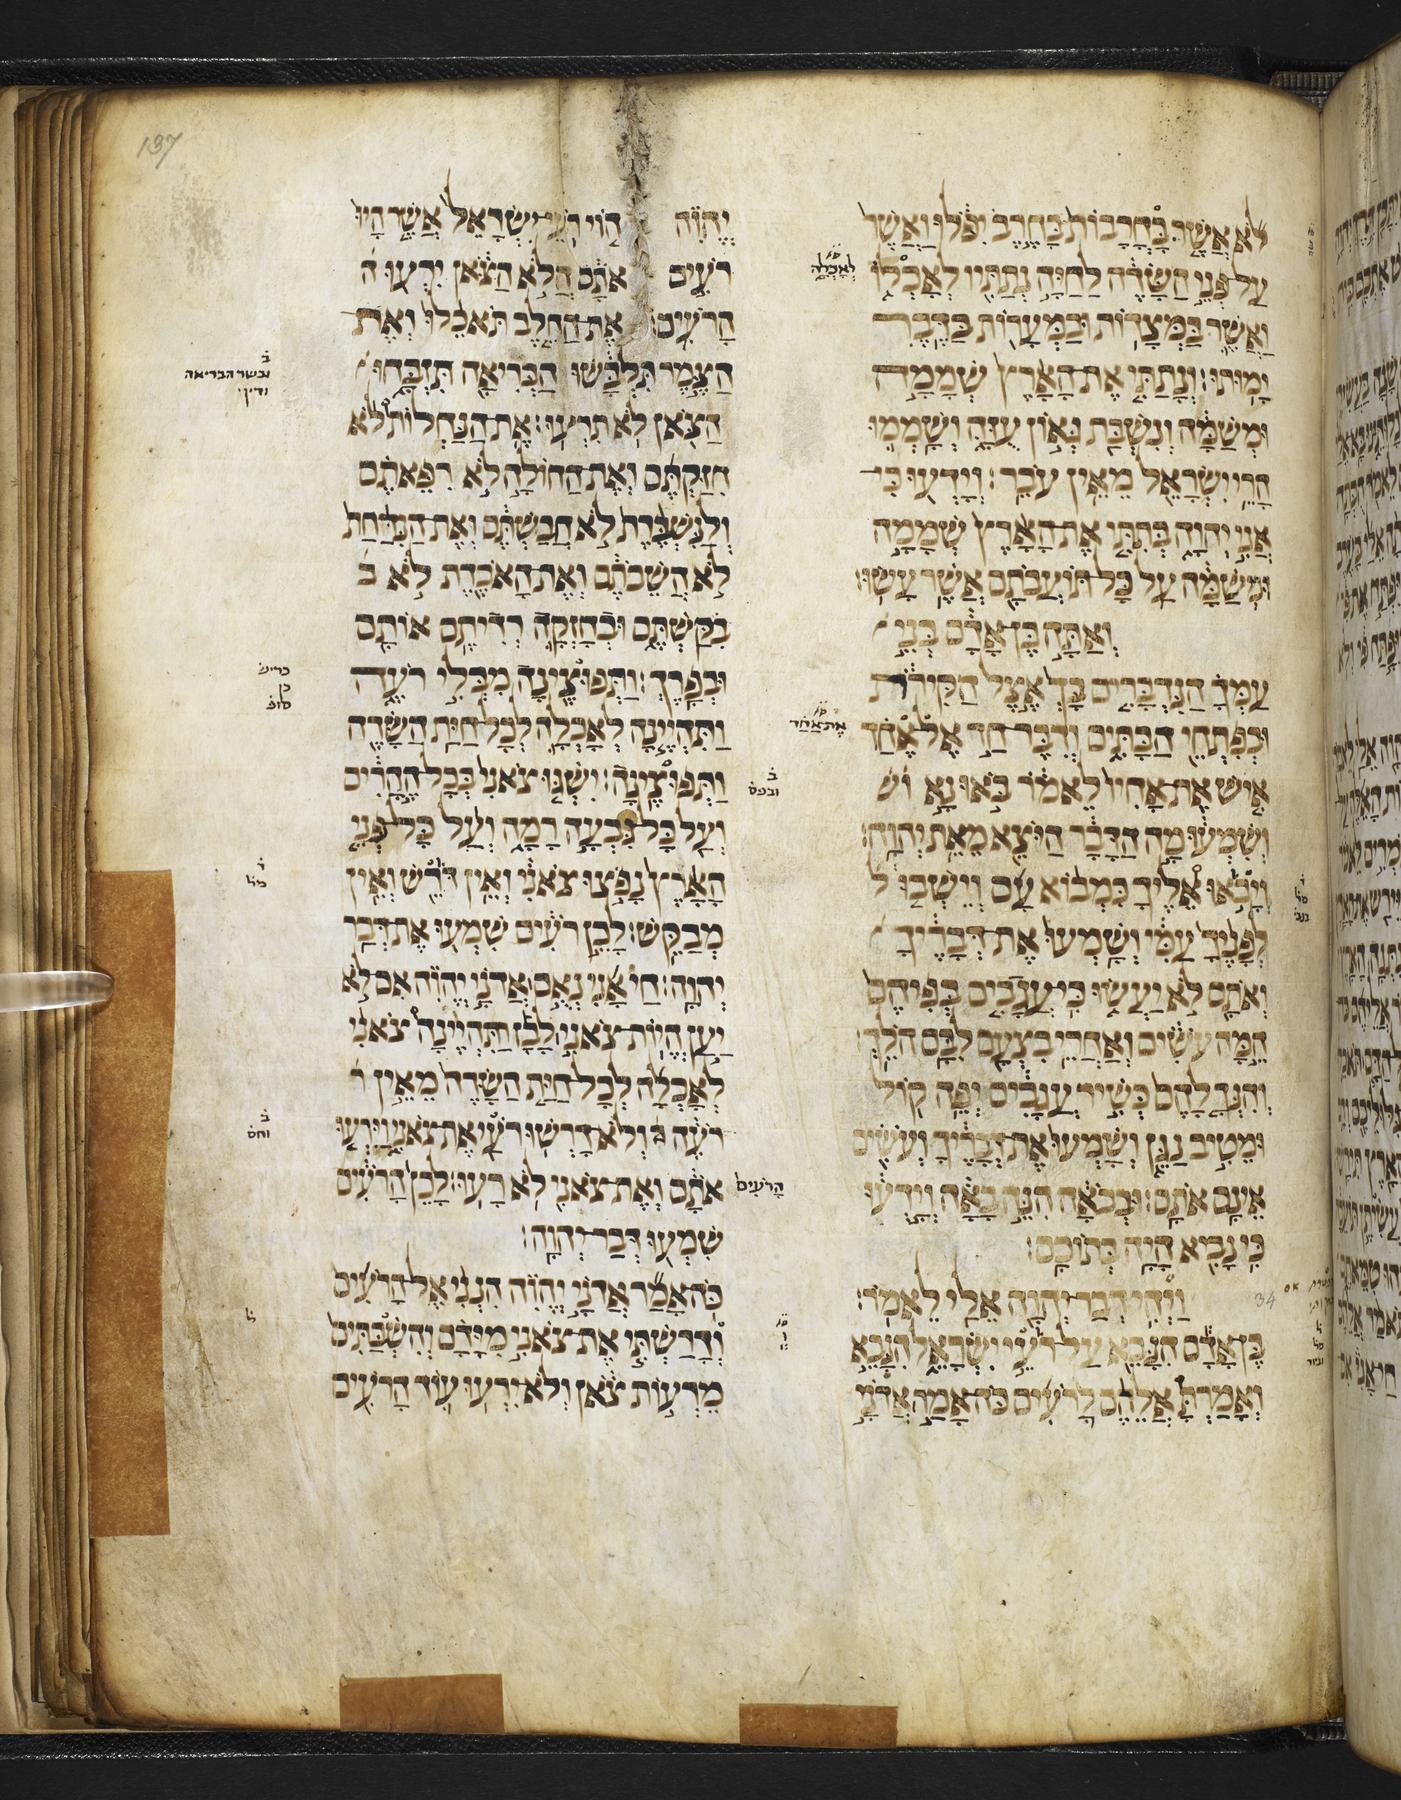 לא אשר בחרבות בחרב יפלו ואשר
על פני השדה לחיה נתתיו לאכלו
ואשר במצדות ובמערות בדבר
ימותו׃ ונתתי את־הארץ שממה
ומשמה ונשבת גאון עזה ושממו
הרי ישראל מאין עבר׃ וידעו כי־
אני יהוה בתתי את־הארץ שממה
ומשמה על כל־תועבתם אשר עשו׃
ואתה בן־אדם בני
עמך הנדברים בך אצל הקירות
ובפתחי הבתים ודבר־חד אל־אחד
איש את־אחיו לאמר באו־נא וש
ושמעו מה הדבר היוצא מאת יהוה׃
ויבאו אליך כמבוא־עם וישבו ל
לפניך עמי ושמעו את־דבריך
ואתם לא יעשו כי־עגבים בפיהם
המה עשים ואחרי בצעם לבם הלך׃
והנך להם כשיר עגבים יפה קול
ומטיב נגן ושמעו את־דבריך ועשים
אינם אתם׃ ובבאה הנה באה וידעו
כי נביא היה בתוכם׃
ויהי דבר־יהוה אלי לאמר׃
בן־אדם הנבא על־רעי ישראל הנבא
ואמרת אליהם לרעים כה־אמר אדני
לאכלה
את אחד
ובפס
הרעים
34
137
יהוה הוי רעי־ישראל אשר היו
רעים אתם הלא הצאן ירעו ה
הרעים׃ את־החלב תאכלו ואת־
הצמר תלבשו הבריאה תזבחו
הצאן לא תרעו׃ את־הנחלות לא
חזקתם ואת־החולה לא רפאתם
ולנשברת לא חבשתם ואת־הנדחת
לא השבתם ואת־האבדת לא ב
בקשתם ובחזקה רדיתם אותם
ובפרך׃ ותפוצינה מבלי רעה
ותהיינה לאכלה לכל־חית השדה
ותפוצינה׃ ישגו צאני בכל־ההרים
ועל כל־גבעה רמה ועל כל־פני
הארץ נפצו צאני ואין דרש ואין
מבקש׃ לכן רעים שמעו את־דבר
יהוה׃ חי אני נאם אדני יהוה אם־לא
יען היות־צאני לבז ותהיינה צאני
לאכלה לכל־חית השדה מאין ר
רעה ולא־דרשו רעי את־צאני וירעו
אתם ואת־צאני לא רעו׃ לכן הרעים
שמעו דבר־יהוה׃
כה־אמר אדני יהוה הנני אל־הרעים
ודרשתי את־צאני מידם והשבתים
מרעות צאן ולא־ירעו עוד הרעים
ובשר הבריאה
ודין
כן
סופ